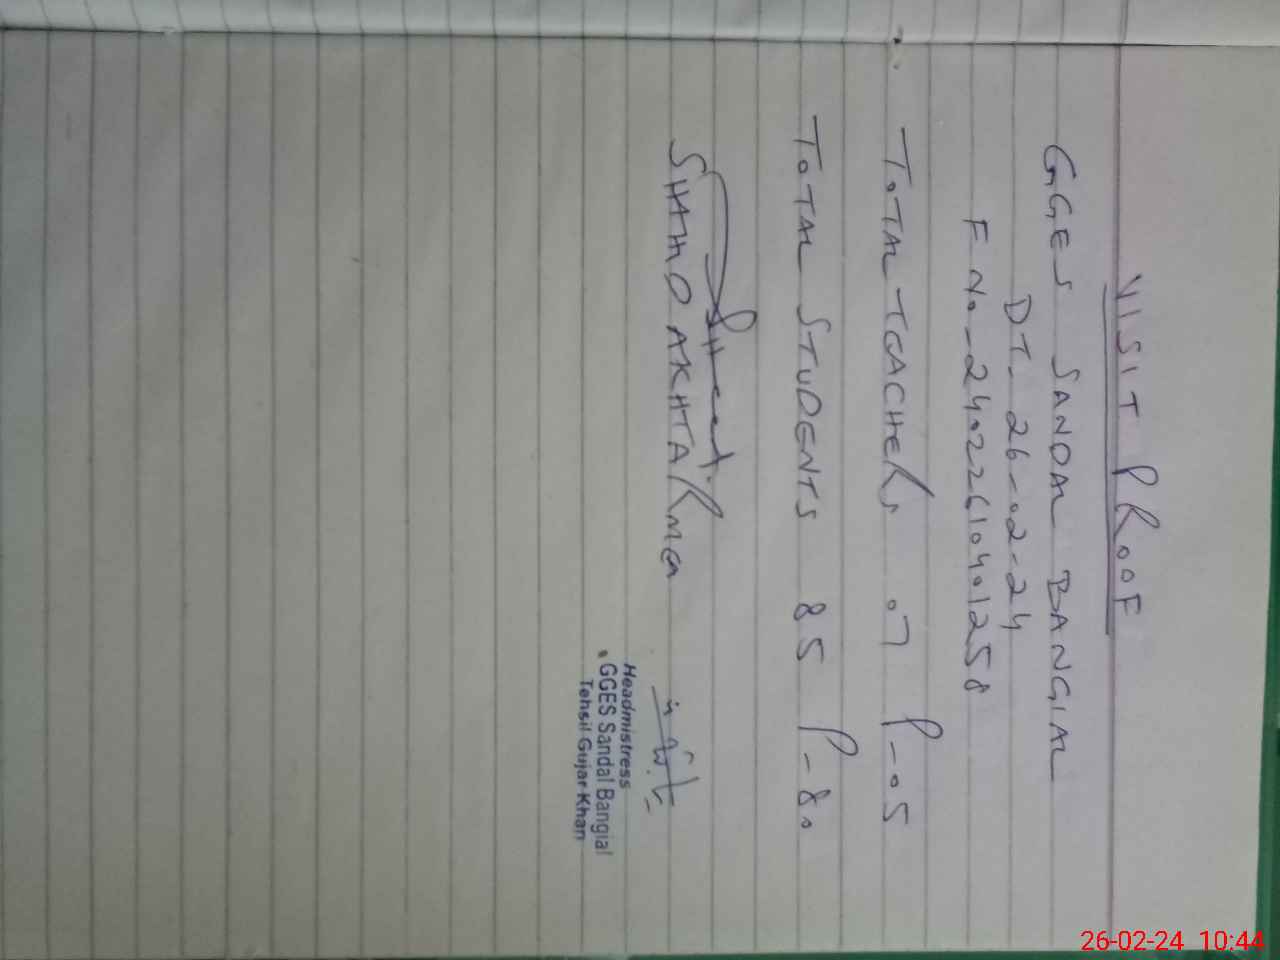 VISIT PROOF
GGES SANDAL BANGIAL
DT- 26-02-24
F No-24022610401258
TOTAL TEACHERS 07 P-05
TOTAL STUDENTS 85 P-80
SHAMO AKHTAR
Headmistress
GGES Sandal Bangial
Tehsil Gujar Khan
26-02-24 10:44